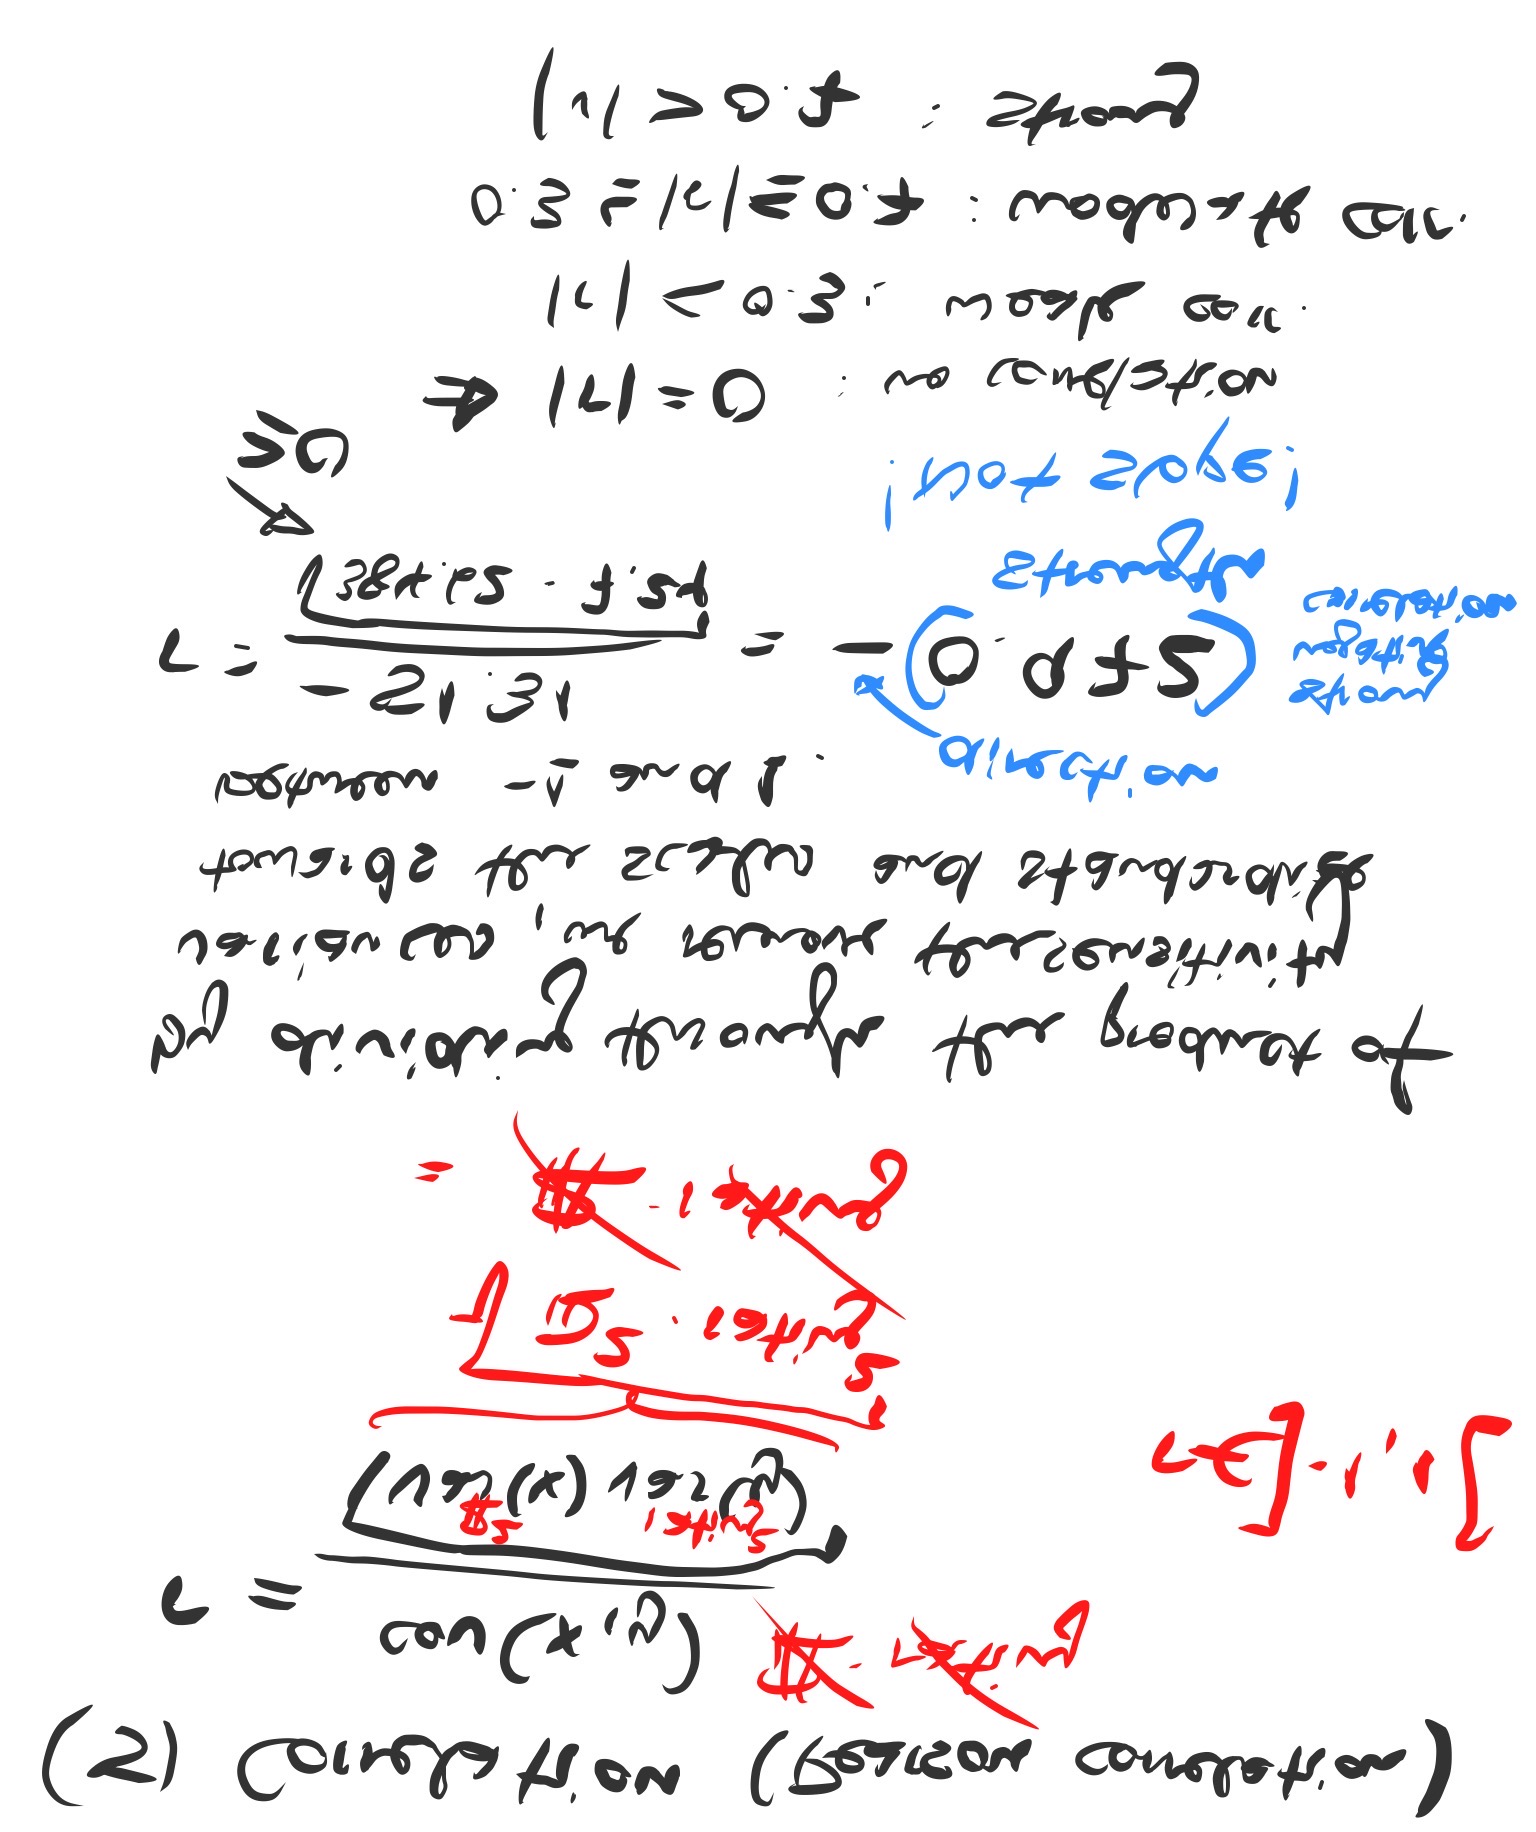 (5) Correlation (Pearson correlation)
r = cov(x,y) / √(var(x) var(y))
₽ · rating
₽² rating²
r ∈ ]-1, 1[
√(₽² · rating²)
= ₽ · rating
by dividing through the product of
variances, we remove the sensitivity
towards the scales and standardize
between -1 and 1.
direction
r = -51.31 / √(384.62 · 7.24) = -(0.972)
strong
negative
correlation
strength
≥0
! Not slope!
⇒ |r| = 0 : no correlation
|r| < 0.3 : weak corr.
0.3 ≤ |r| ≤ 0.7 : moderate corr.
|r| > 0.7 : strong